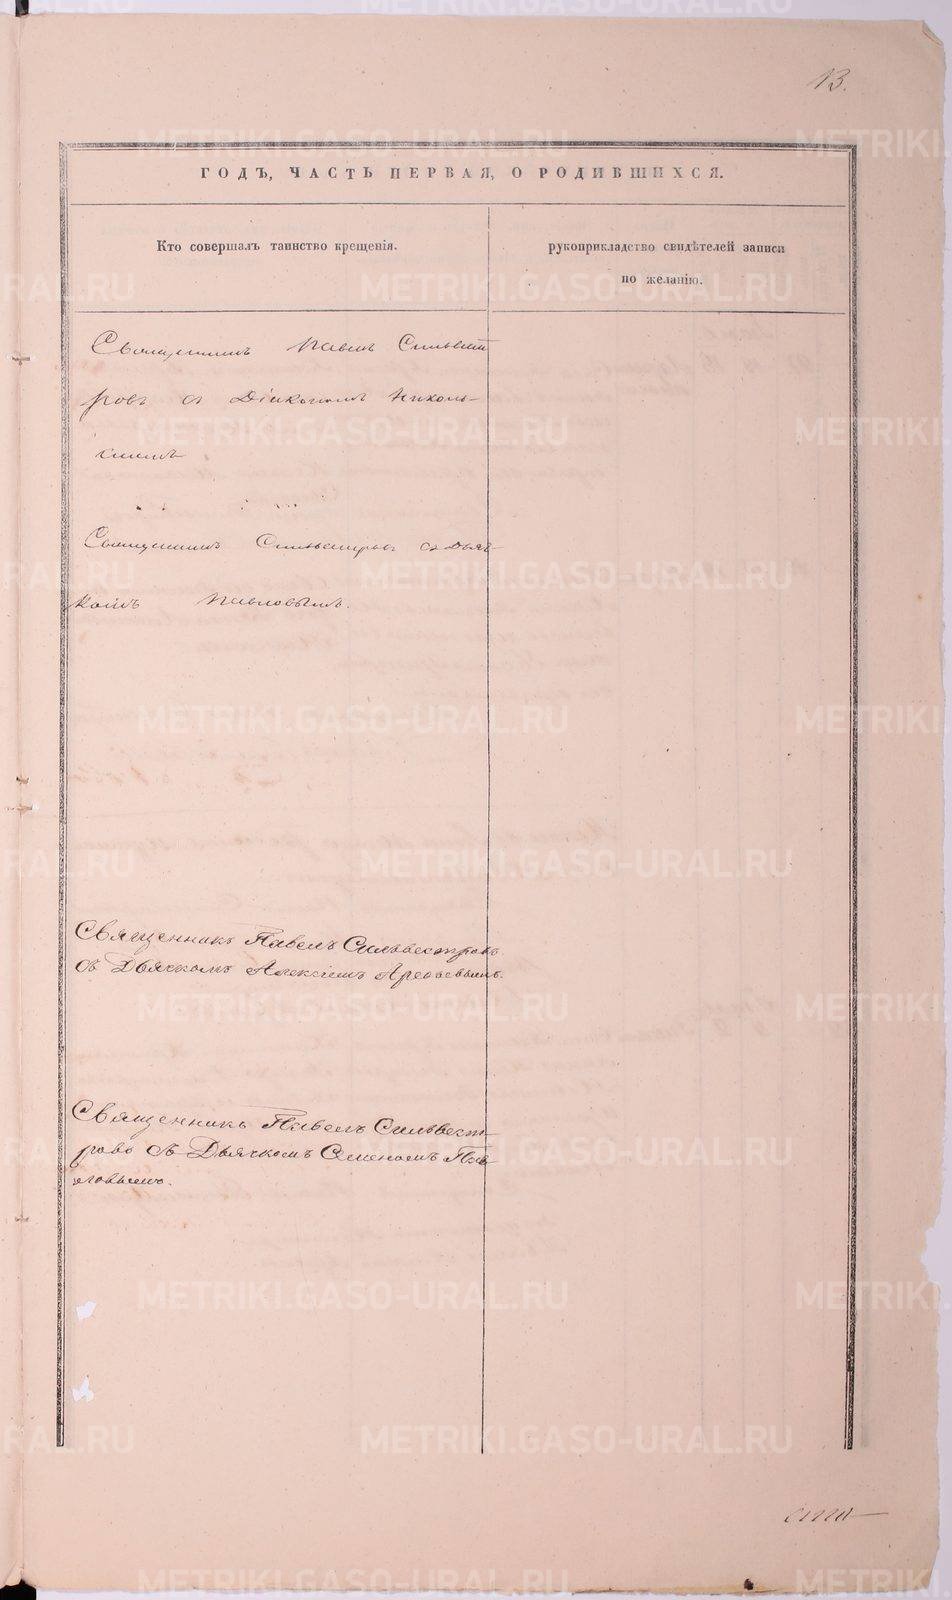 13.
ГОДЪ, ЧАСТЬ ПЕРВАЯ, О РОДИВШИХСЯ.
Кто совершалъ таинство крещенія.
рукоприкладство свидѣтелей записи
по желанію.
Священникъ Павелъ Сильвест
ровъ съ Діакономъ Николь-
скимъ
Священникъ Сильвестровъ съ Дьяч-
комъ Павловымъ.
Священникъ Павелъ Сильвестровъ
съ Дьячкомъ Алексіемъ
Священникъ Павелъ Сильвест-
ровъ съ Дьячкомъ Семеномъ Пав-
ловымъ.
METRIKI.GASO-URAL.RU